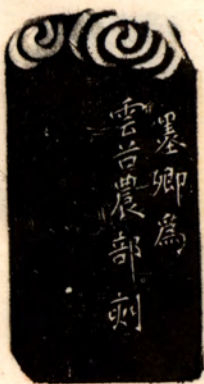 墨卿為
雲谷農部刻